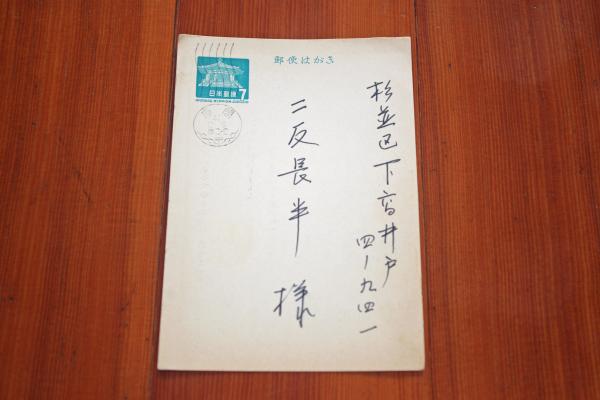 郵便はがき
杉並区下高井戸
四ー九四一
二反長半様
日本郵便
7